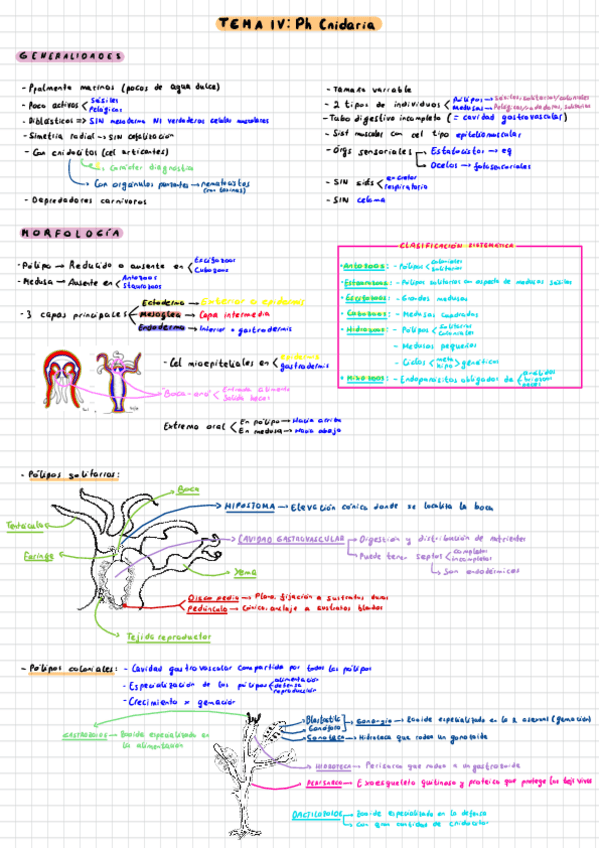 TEMA IV: Ph Cnidaria
GENERALIDADES
- Ppalmente marinos (pocos de agua dulce)
- Poco activos
Sésiles
Pelágicos
- Diblásticos => SIN mesodermo NI verdaderas celulas musculares
- Simetria radial -> SIN cefalización
- Con cnidocitos (cel urticantes)
Carácter diagnostico
Con orgánulos punzantes -> nematocistos
- Depredadores carnivoros
- Tamaño variable
- 2 tipos de individuos
Pólipos -> Sésiles, solitarios/coloniales
Medusas -> Pelágicos, nadadores, solitarios
- Tubo digestivo incompleto (= cavidad gastrovascular)
- Sist muscular con cel tipo epiteliomuscular
- Órgs sensoriales
Estatocistos -> eq
Ocelos -> fotosensoriales
- SIN sists
excretor
respiratorio
- SIN celoma
MORFOLOGÍA
- Pólipo -> Reducido o ausente en
Escifozoos
Cubozoos
- Medusa -> Ausente en
Antozoos
Staurozoos
- 3 capas principales
Ectodermo -> Exterior o epidermis
Mesoglea -> Capa intermedia
Endodermo -> Interior o gastrodermis
- Cel mioepiteliales en
Epidermis
gastrodermis
"Boca-ano"
Entrada alimento
Salida heces
Extremo oral
En pólipo -> Hacia arriba
En medusa -> Hacia abajo
CLASIFICACIÓN SISTEMÁTICA
· Antozoos: - Pólipos
coloniales
solitarios
· Estaurozoos: - Pólipos solitarios con aspecto de medusas sésiles
· Escifozoos: - Grandes medusas
· Cubozoos: - Medusas cuadradas
· Hidrozoos: - Pólipos
Solitarios
coloniales
- Medusas pequeñas
- Ciclos
meta
hipo
genéticos
· Mixozoos: - Endoparásitos obligados de
anélidos
briozoos
peces
- Pólipos solitarios:
Boca
HIPOSTOMA - Elevación cónica donde se localiza la boca
Tentáculos
Faringe
CAVIDAD GASTROVASCULAR
Digestión y distribución de nutrientes
Puede tener septos
completos
incompletos
Son endodérmicos
Yema
Disco pedio - Plano, fijación a sustratos duros
Pedúnculo - Cónico, anclaje a sustratos blandos
Tejido reproductor
- Pólipos coloniales: - Cavidad gastrovascular compartida por todos los pólipos
- Especialización de los pólipos
alimentación
defensa
reproducción
- Crecimiento x gemación
GASTROZOIDES - Zooide especializado en
la alimentación
Blastostilo
Gonóforo
Gonangio - Zooide especializado en la R asexual (gemación)
Gonoteca - Hidroteca que rodea un gonozoide
HIDROTECA - Perisarco que rodea a un gastrozoide
PERISARCO - Exoesqueleto quitinoso y proteico que protege los tejs vivos
DACTILOZOIDE
Zooide especializado en la defensa
Con gran cantidad de cnidocitos